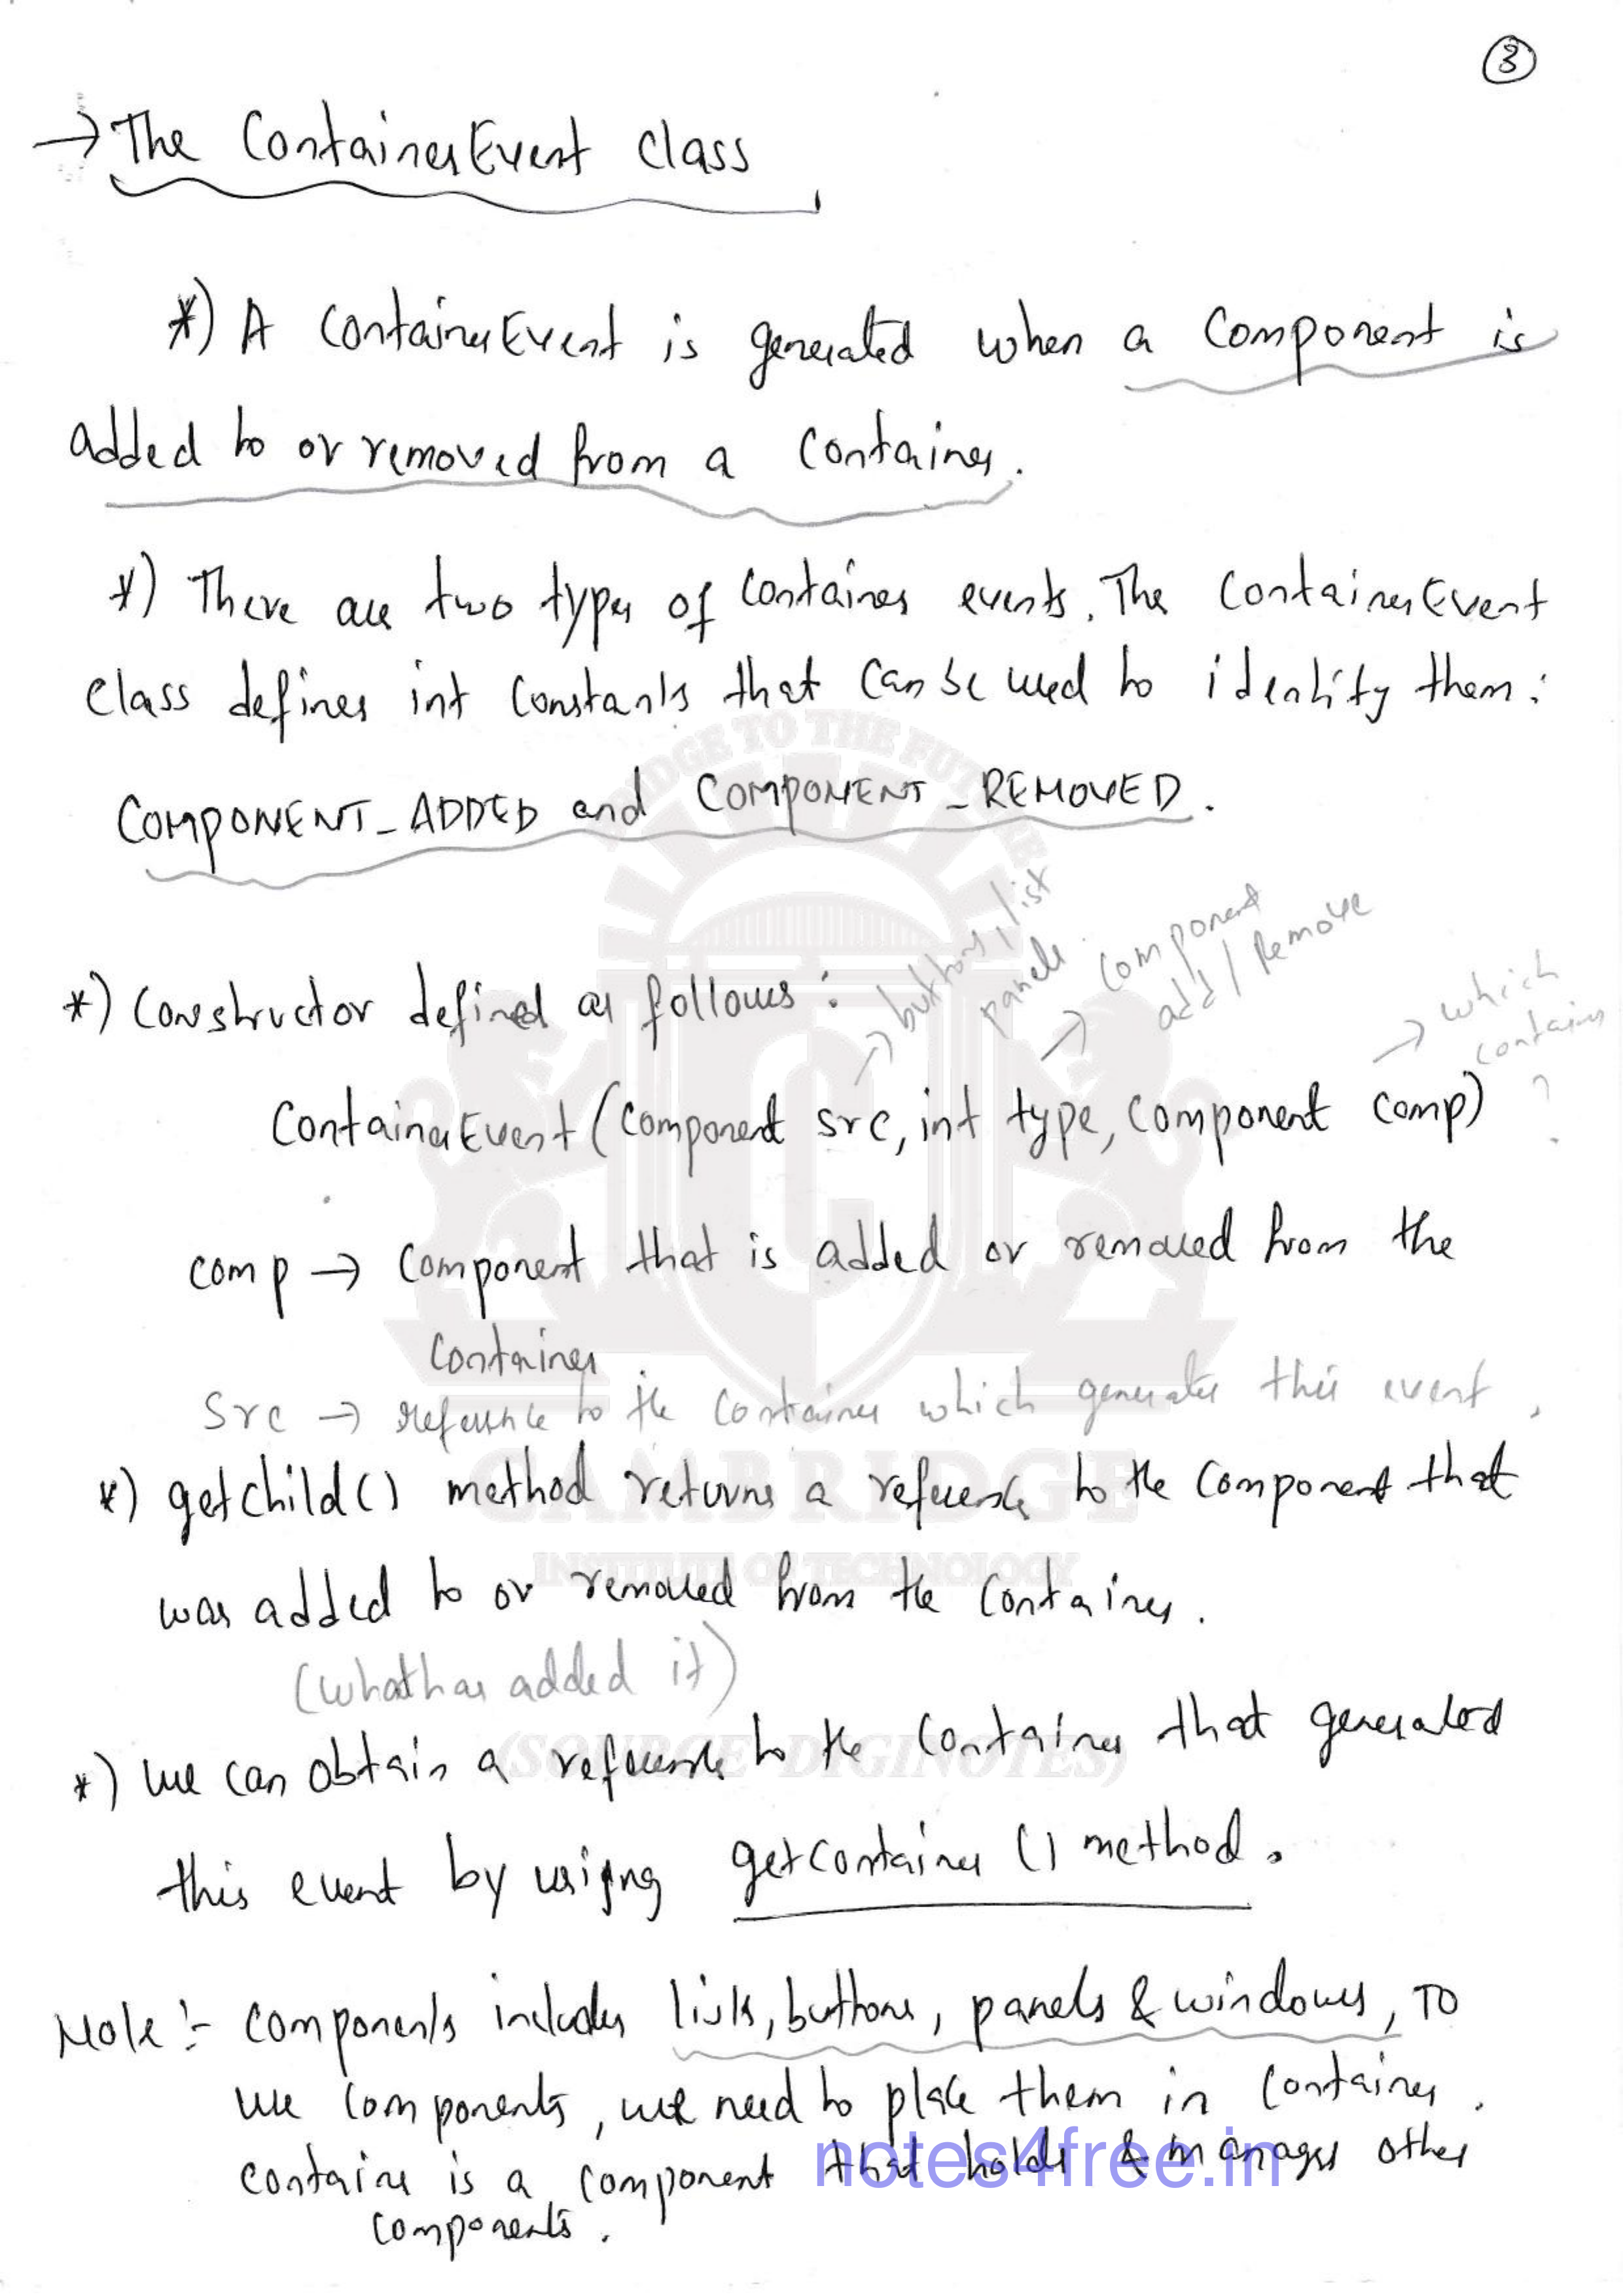 3
→ The ContainerEvent class
*) A ContainerEvent is generated when a component is
added to or removed from a container.
*) There are two types of container events. The ContainerEvent
class defines int constants that can be used to identify them:
COMPONENT_ADDED and COMPONENT_REMOVED.
*) Constructor defined as follows:
→ buttons, list
panels
→ component
add / Remove
→ which
container
?
ContainerEvent(Component src, int type, Component comp)
comp → component that is added or removed from the
container
src → reference to the container which generates this event.
*) getchild() method returns a reference to the component that
was added to or removed from the container.
(what has added it)
*) we can obtain a reference to the container that generated
this event by using getContainer() method.
Note :- Components includes lists, buttons, panels & windows, TO
use components, we need to place them in container.
container is a component that holds & manages other
components.
BRIDGE TO THE FUTURE
CAMBRIDGE
INSTITUTE OF TECHNOLOGY
(SOURCE DIGINOTES)
notes4free.in